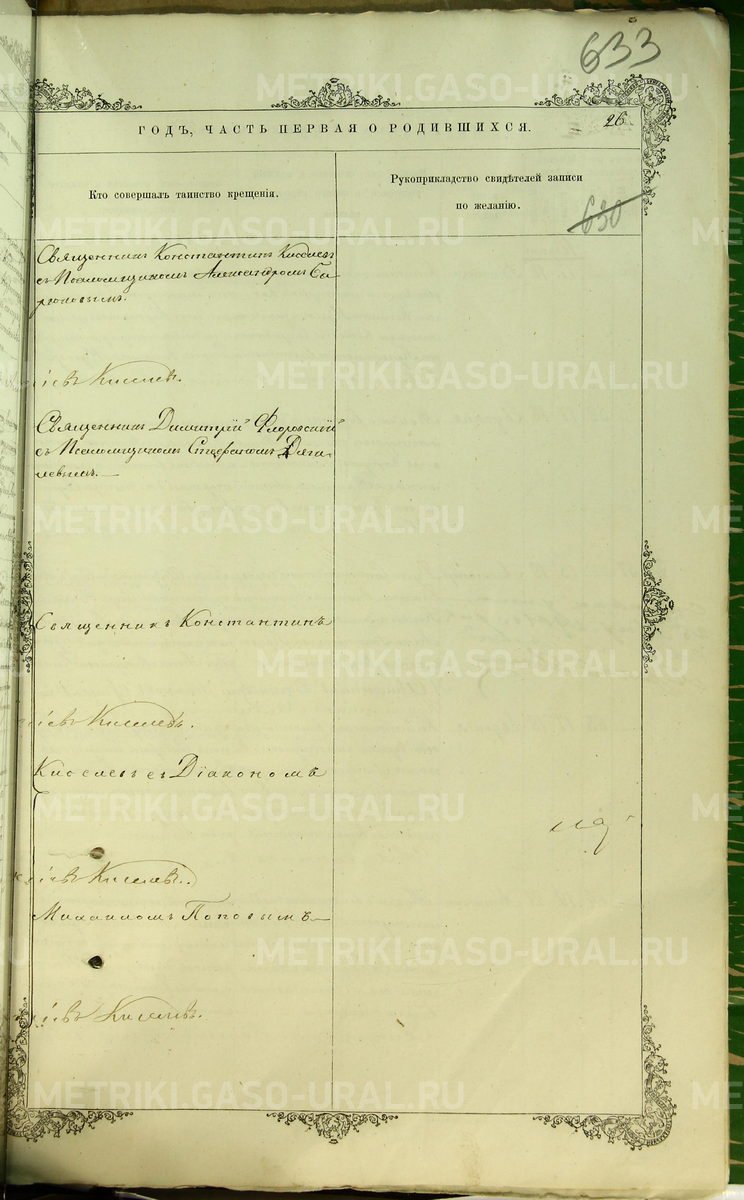 633
ГОДЪ, ЧАСТЬ ПЕРВАЯ О РОДИВШИХСЯ.
26.
Кто совершалъ таинство крещенія.
Рукоприкладство свидѣтелей записи
по желанію.
630
Священникъ Константинъ Киселевъ
съ Псаломщикомъ Александромъ
Киселевъ.
Священникъ Димитрій Флоровскій
съ Псаломщикомъ Стефаномъ Дяги-
левымъ.
Священникъ Константинъ
Киселевъ.
Киселевъ съ Діакономъ
Киселевъ.
Михаиломъ Поповымъ
Киселевъ.
METRIKI.GASO-URAL.RU